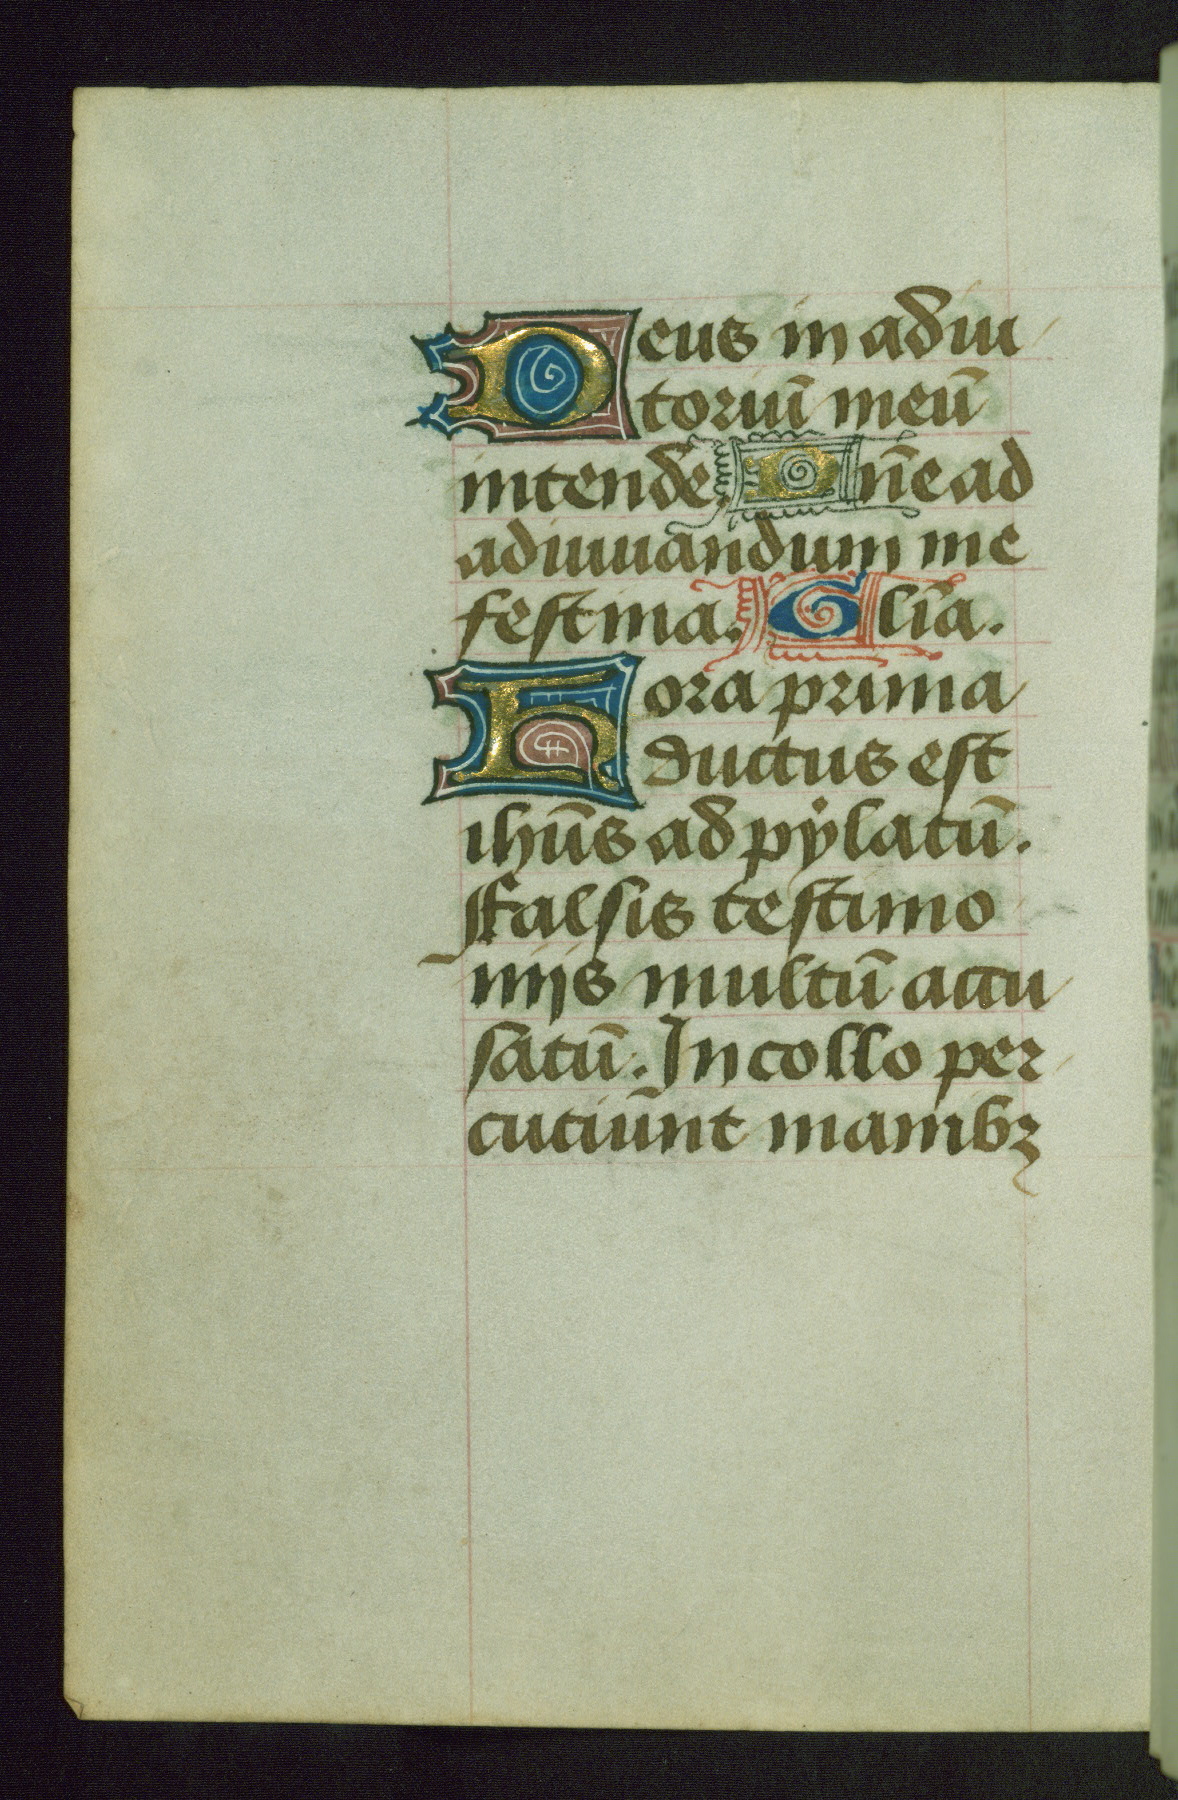 Deus in adiu
toriū meū
intende. Dn̄e ad
adiuuandum me
festina. Gl̄ia.
Hora prima
ductus est
ihūs ad pylatū.
Falsis testimo
nijs multū accu
satū. In collo per
cutiūnt manibꝫ